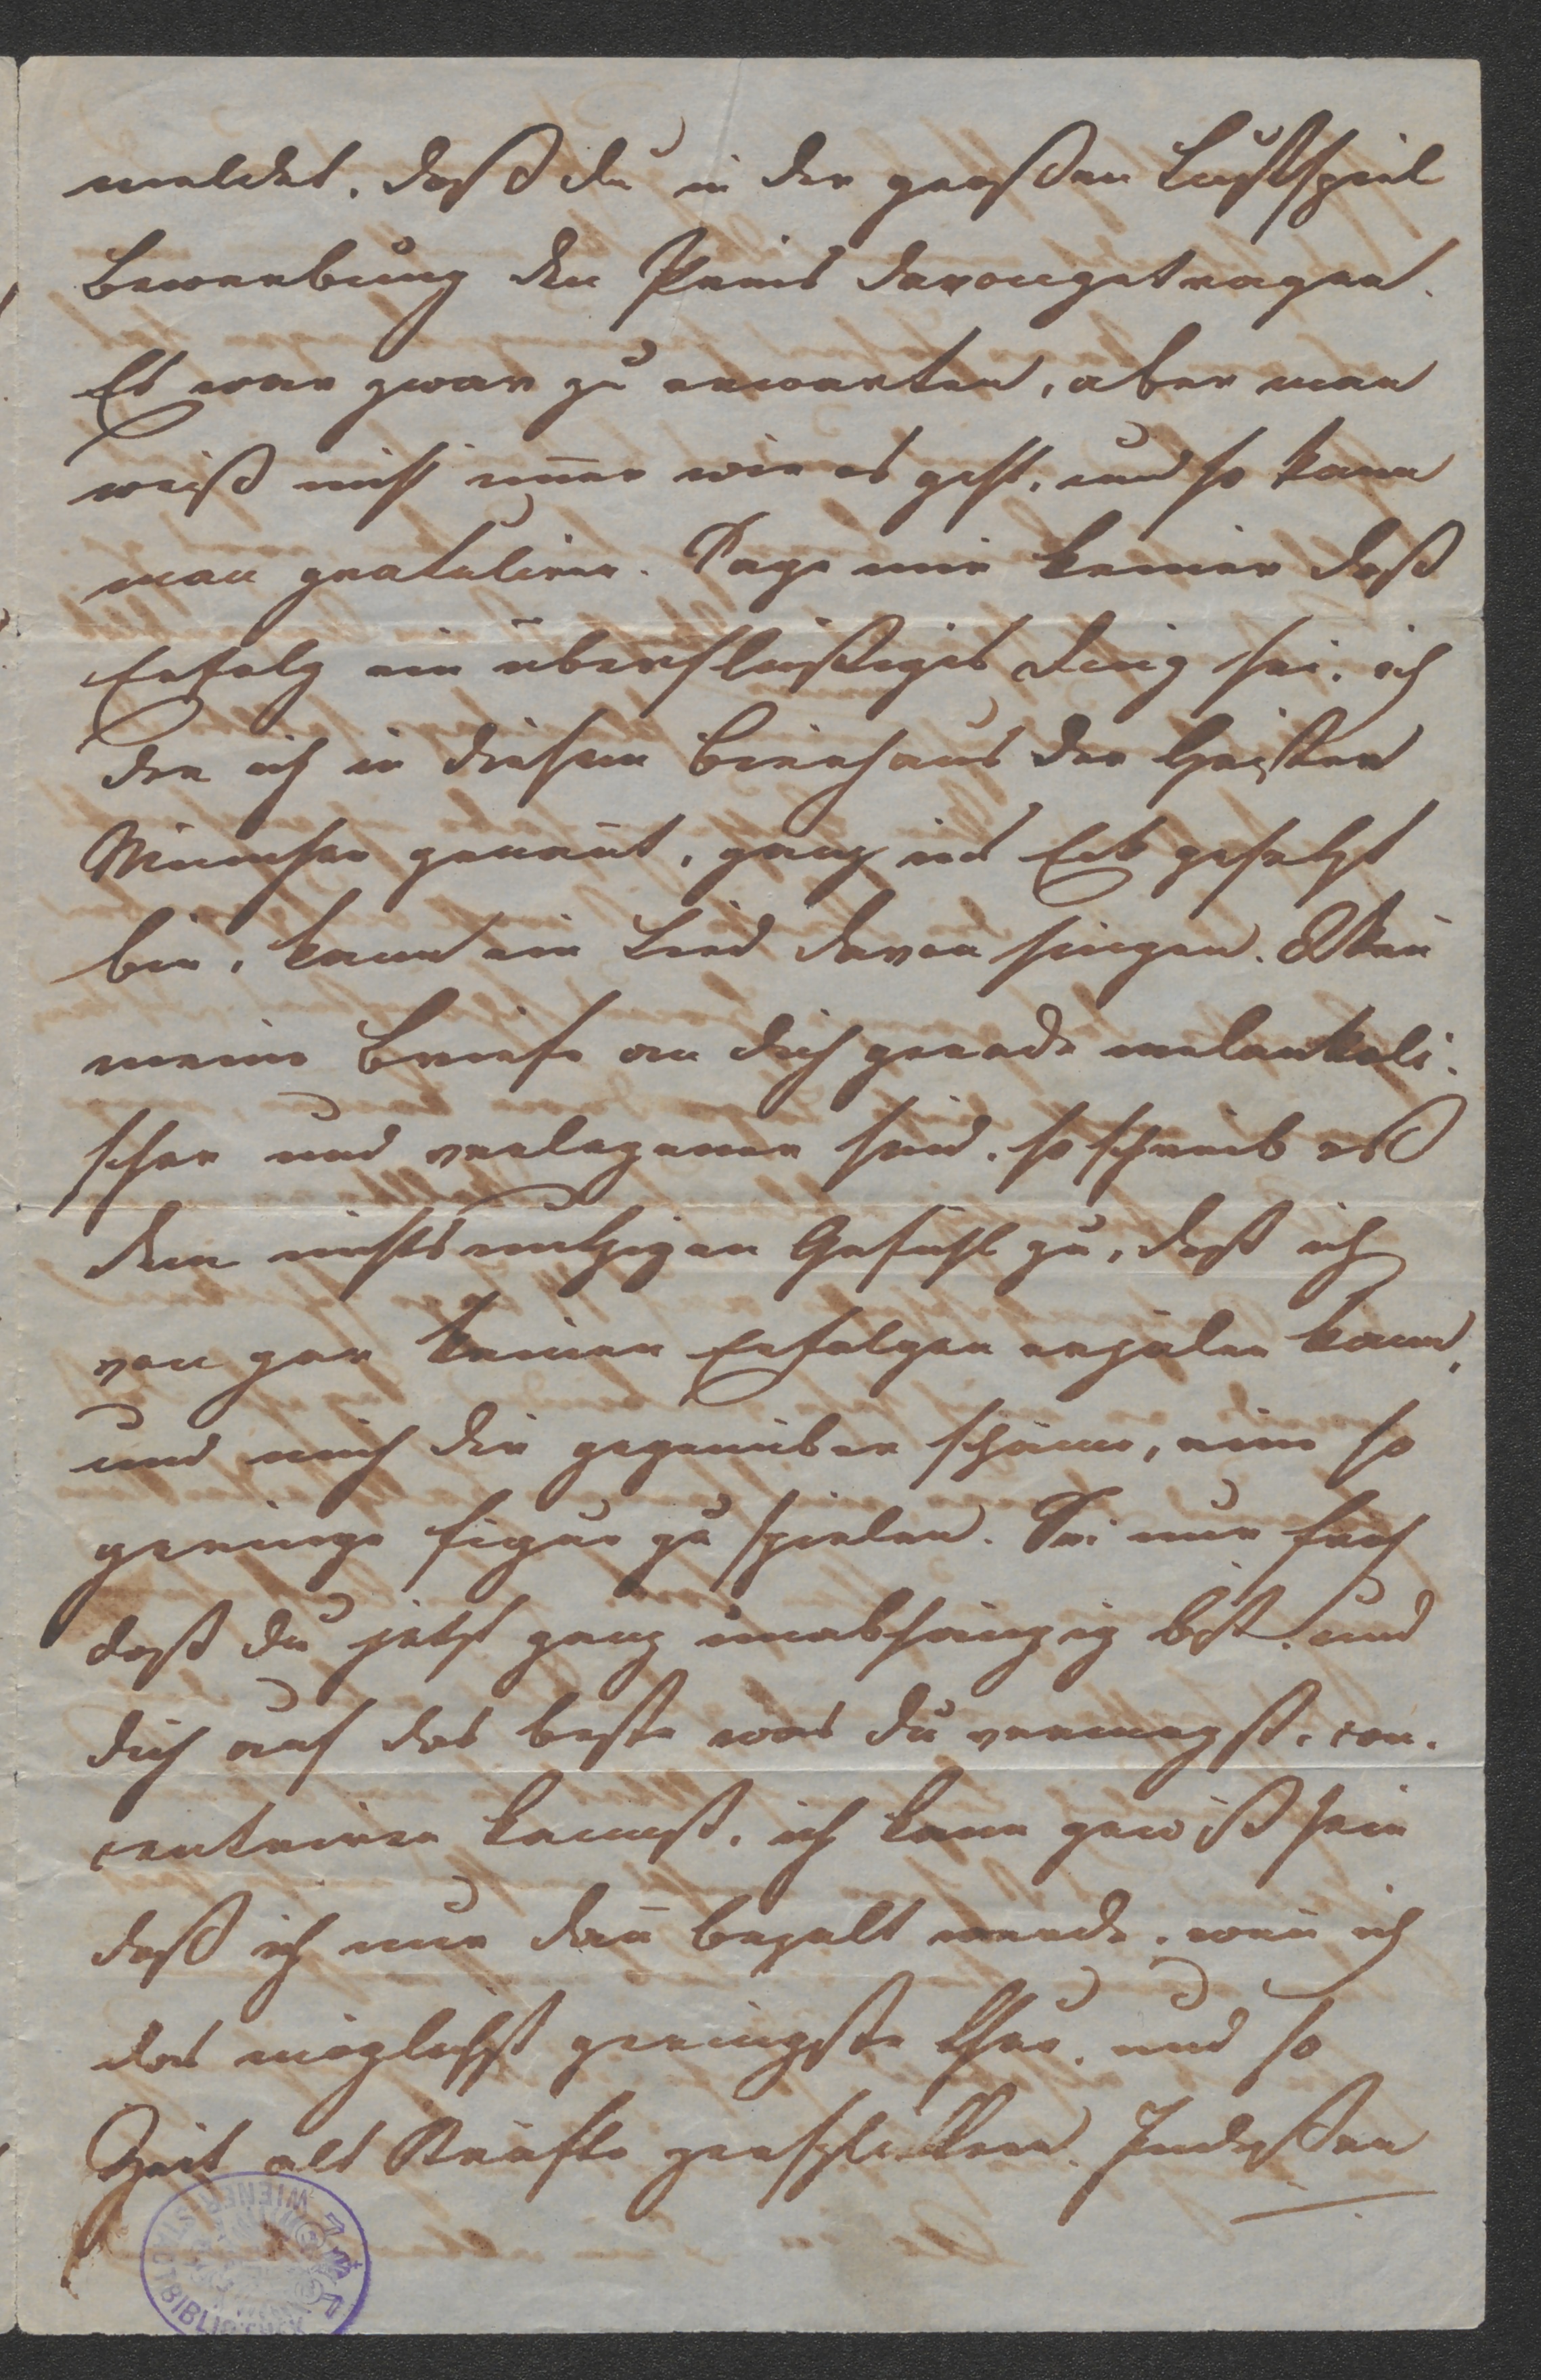 meldet, daß du in der großen Lustspiel
bewerbung den Preis davongetragen.
Es war zwar zu erwarten, aber man
weiß nicht im̄er wie es geht, und so kann
man gratuliren. Sage mir keiner daß
Erfolg ein überflüßiges Ding sei. ich
der ich in diesem Bierhaus der Geister
München genan̄t, ganz ins Eck gesetzt
bin, kann ein Lied davon singen. Wen̄
meine Briefe an dich gerade melankoli-
scher und verlegener sind, so schreib es
dem nichtsnutzigen Gefühl zu, daß ich
von gar keinen Erfolgen erzälen kann,
und mich dir gegenüber schäme, eine so
geringe Figur zu spielen. Sei nur froh
daß du jetzt ganz unabhängig bist und
dich auf das beste was du vermagst, con-
centriren kannst. ich kann gewiß sein
daß ich nur dan̄ bezalt werde, wen̄ ich
das möglichst geringste thue, und so
Zeit als Kräfte zersplittern. Indeßen
WIENER STADTBIBLIOTHEK